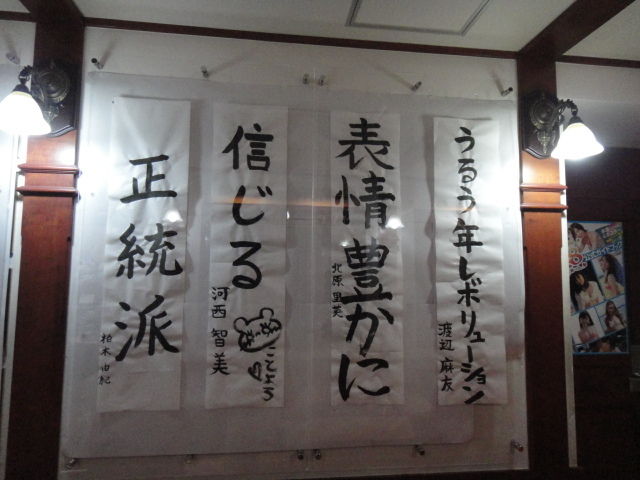 うるう年レボリューション
渡辺 麻友
表情豊かに
北原 里英
信じる
河西 智美
正統派
柏木 由紀